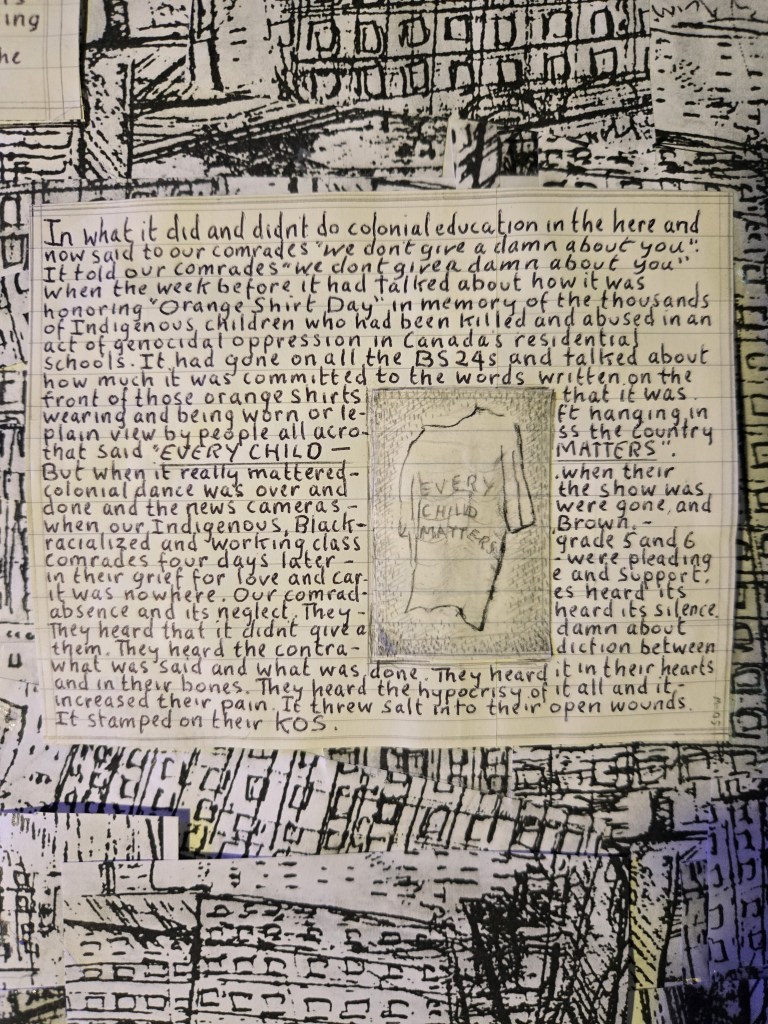 ing
he
In what it did and didn't do colonial education in the here and
now said to our comrades "we don't give a damn about you".
It told our comrades "we dont give a damn about you"
when the week before it had talked about how it was
honoring "Orange Shirt Day" in memory of the thousands
of Indigenous children who had been killed and abused in an
act of genocidal oppression in Canada's residential
schools. It had gone on all the BS24s and talked about
how much it was committed to the words written on the
front of those orange shirts that it was
wearing and being worn or le- ft hanging in
plain view by people all acro- ss the country
that said "EVERY CHILD - MATTERS".
But when it really mattered - when their
colonial dance was over and the show was
done and the news cameras - were gone, and
when our Indigenous, Black - Brown -
racialized and working class grade 5 and 6
comrades four days later - were pleading
in their grief for love and car- e and support,
it was nowhere. Our comrad- es heard its
absence and its neglect. They - heard its silence.
They heard that it didnt give a damn about
them. They heard the contra- diction between
what was said and what was done. They heard it in their hearts
and in their bones. They heard the hypocrisy of it all and it
increased their pain. It threw salt into their open wounds.
It stamped on their KOS.
EVERY
CHILD
MATTERS